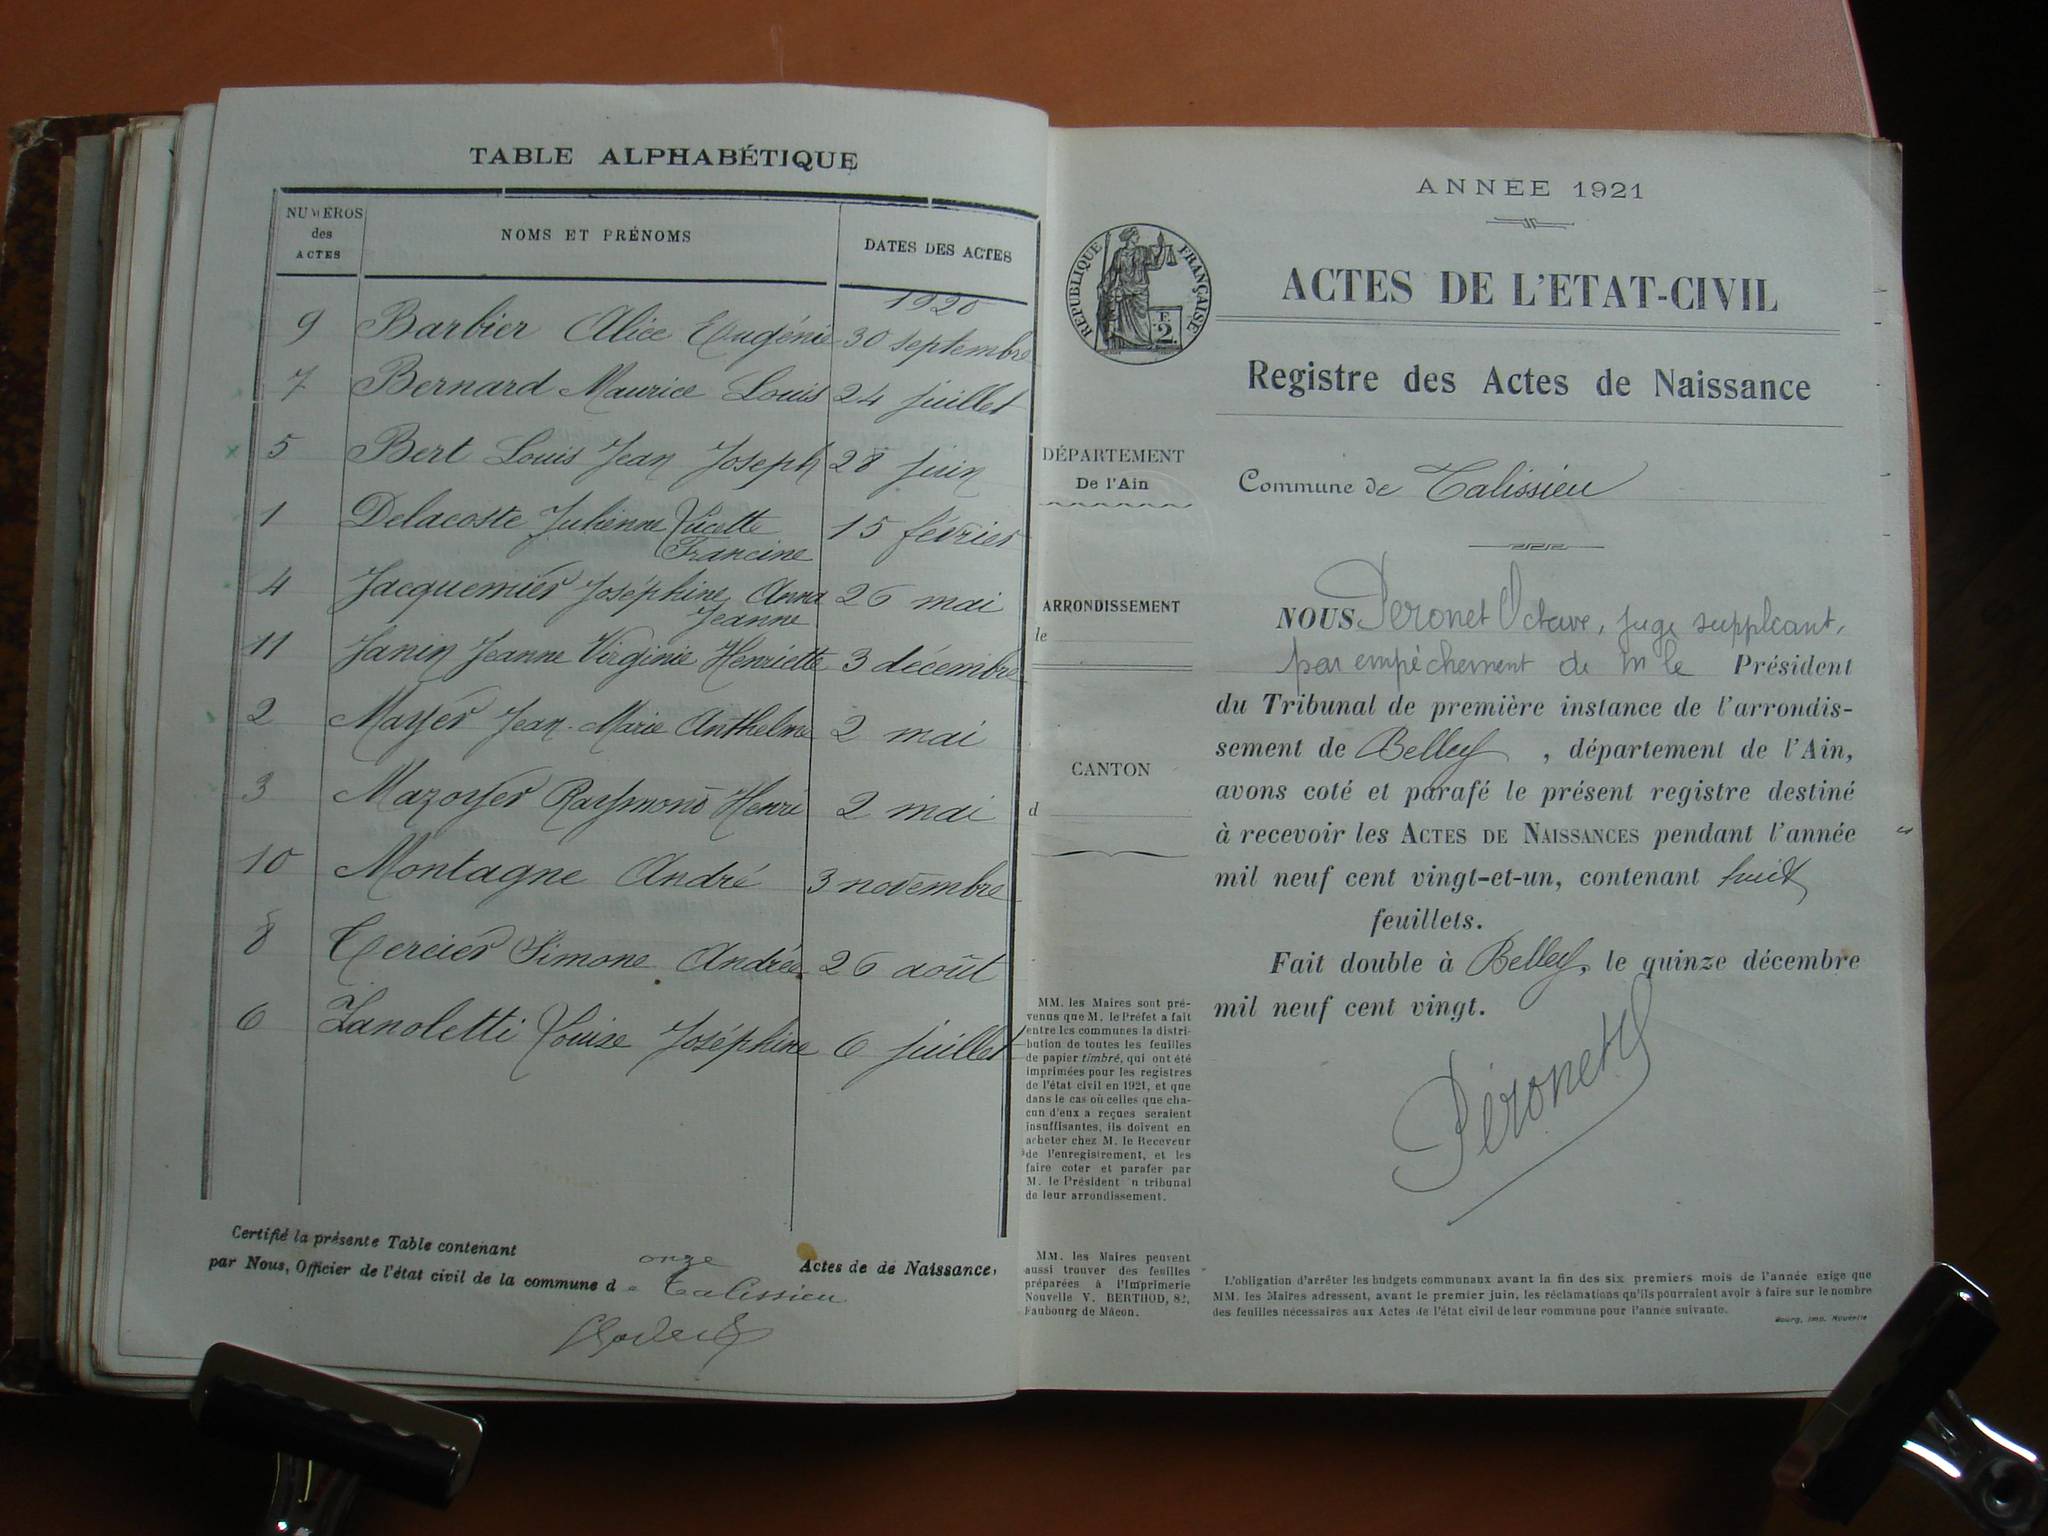 TABLE ALPHABÉTIQUE
NUMÉROS des ACTES
NOMS ET PRÉNOMS
DATES DES ACTES
1920
9 Barbier Alice Eugénie 30 septembre
7 Bernard Maurice Louis 24 juillet
5 Bert Louis Jean Joseph 28 juin
1 Delacoste Julienne Lucette 15 février
Francine
4 Jacquemier Joséphine Anna 26 mai
Jeanne
11 Janin Jeanne Virginie Henriette 3 décembre
2 Mayer Jean-Marie Anthelme 2 mai
3 Mazoyer Raymond Henri 2 mai
10 Montagne André 3 novembre
8 Tercier Simone Andrée 26 août
6 Zanoletti Louise Joséphine 6 juillet
Certifié la présente Table contenant onze Actes de de Naissance,
par Nous, Officier de l'état civil de la commune d e Talissieu
ANNÉE 1921
RÉPUBLIQUE FRANÇAISE
F.
2.
ACTES DE L'ETAT-CIVIL
Registre des Actes de Naissance
DÉPARTEMENT
De l'Ain
ARRONDISSEMENT
le
CANTON
d
Commune de Talissieu
NOUS Péronet Octave, juge suppléant,
par empêchement de M le Président
du Tribunal de première instance de l'arrondis-
sement de Belley, département de l'Ain,
avons coté et parafé le présent registre destiné
à recevoir les ACTES DE NAISSANCES pendant l'année
mil neuf cent vingt-et-un, contenant huit
feuillets.
Fait double à Belley, le quinze décembre
mil neuf cent vingt.
Péronet
MM. les Maires sont pré-
venus que M. le Préfet a fait
entre les communes la distri-
bution de toutes les feuilles
de papier timbré, qui ont été
imprimées pour les registres
de l'état civil en 1921, et que
dans le cas où celles que cha-
cun d'eux a reçues seraient
insuffisantes, ils doivent en
acheter chez M. le Receveur
de l'enregistrement, et les
faire coter et parafer par
M. le Président n tribunal
de leur arrondissement.
MM. les Maires peuvent
aussi trouver des feuilles
préparées à l'Imprimerie
Nouvelle V. BERTHOD, 82,
Faubourg de Mâcon.
L'obligation d'arrêter les budgets communaux avant la fin des six premiers mois de l'année exige que
MM. les Maires adressent, avant le premier juin, les réclamations qu'ils pourraient avoir à faire sur le nombre
des feuilles nécessaires aux Actes de l'état civil de leur commune pour l'année suivante.
Bourg, Imp. Nouvelle